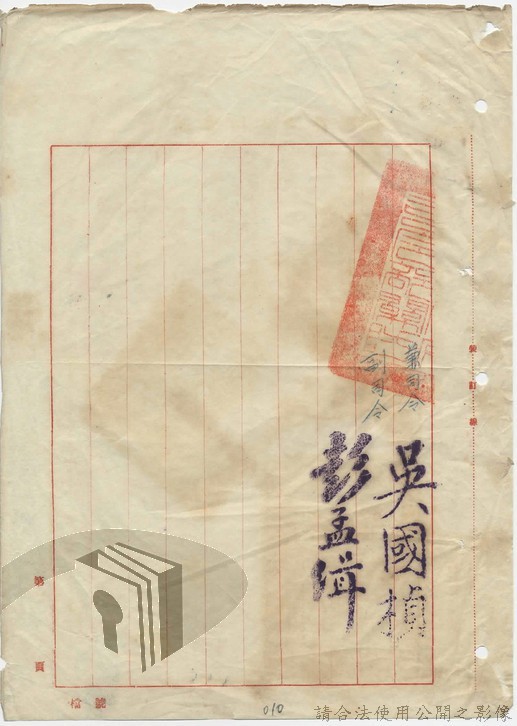 兼司令
吳國楨
副司令
彭孟緝
裝
訂
線
第
頁
檔 號
010
請合法使用公開之影像